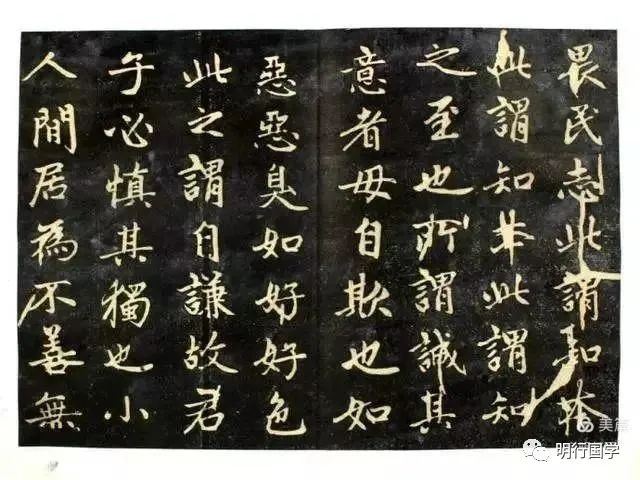 畏民志此謂知本
此謂知本此謂知
之至也所謂誠其
意者毋自欺也如
惡惡臭如好好色
此之謂自謙故君
子必慎其獨也小
人間居為不善無
美篇
明行国学